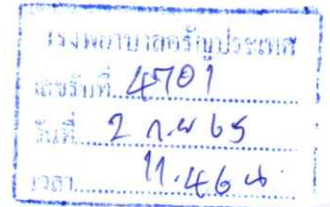 โรงพยาบาลอรัญประเทศ
เลขรับที่ 4701
วันที่ 2 ก.ย 65
เวลา 11.46 น